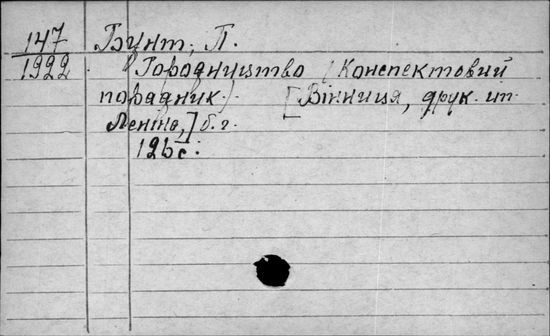 147 Бунт, П.
1922 Городництво (Конспектовий
порадник.) [Вінниця, друк. ип.
Леніна,] б. г.
126 с.